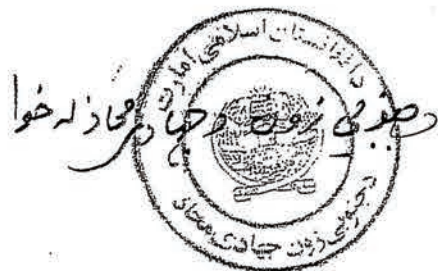 د افغانستان اسلامي امارت
د جنوبي زون د جهادي محاذ له خوا
د جنوبي زون جهادي محاذ